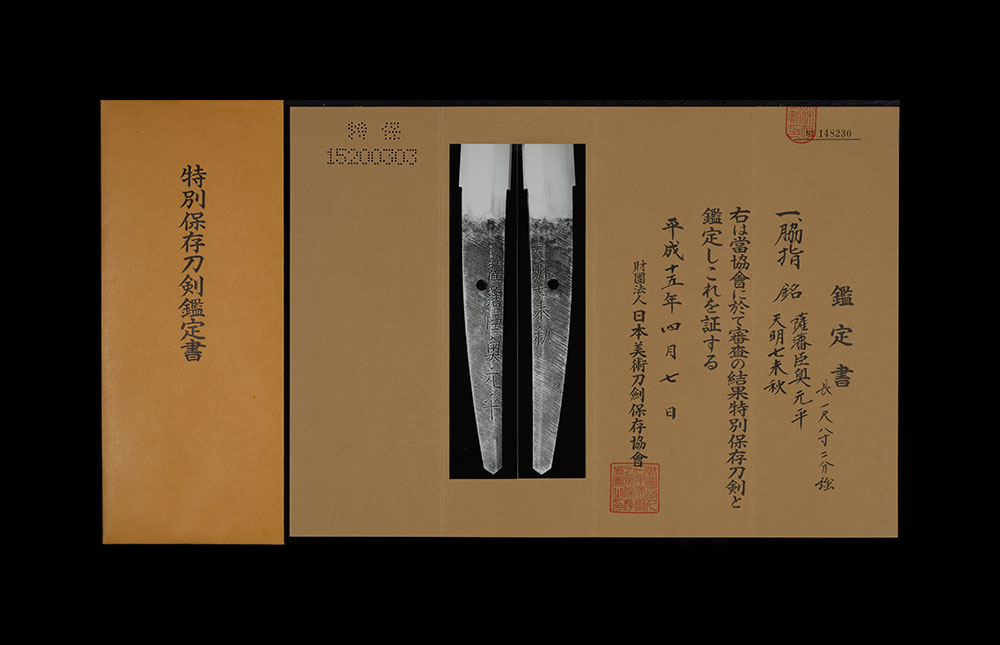 特別保存刀剣鑑定書
特保
15200303
148230
鑑定書
一、脇指 銘 薩藩臣奥元平
天明七未秋
長一尺八寸二分強
右は當協會に於て審査の結果特別保存刀剣と
鑑定しこれを証する
平成十五年四月七日
財團法人日本美術刀剣保存協會
薩藩臣奥元平
天明七未秋